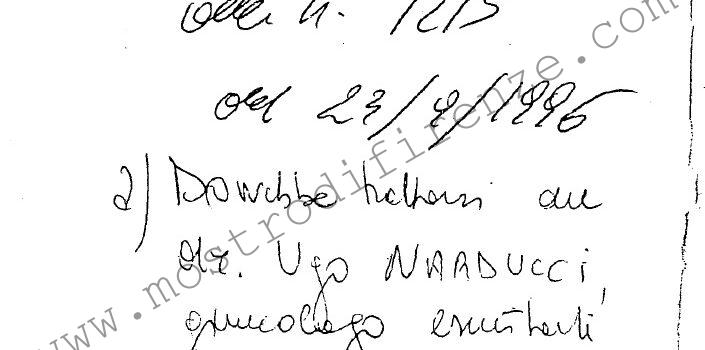 del 23/9/1996
2) Dovrebbe trattarsi del
dr. Ugo NARDUCCI,
ginecologo
www.mostrodifirenze.com